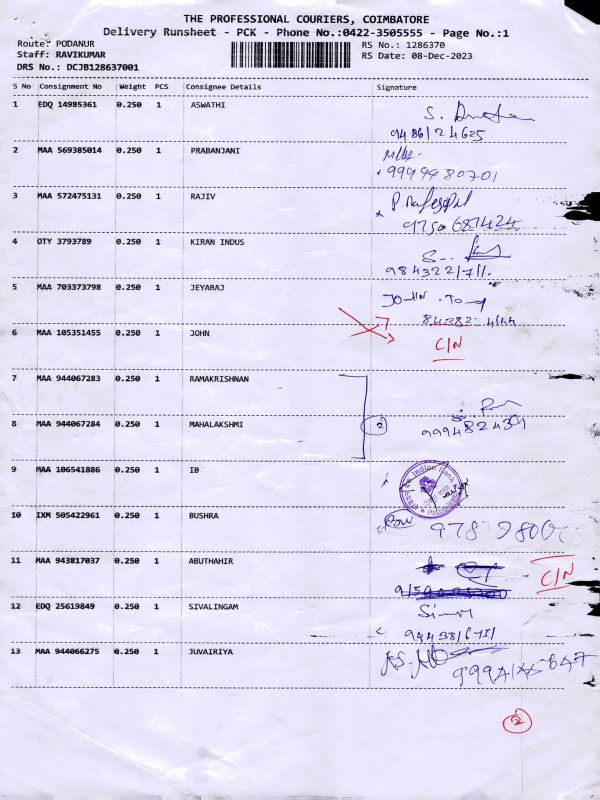 THE PROFESSIONAL COURIERS, COIMBATORE
Delivery Runsheet - PCK - Phone No.:0422-3505555 - Page No.:1
Route: PODANUR
RS No.: 1286370
Staff: RAVIKUMAR
RS Date: 08-Dec-2023
DRS No.: DCJB128637001
S No Consignment No Weight PCS Consignee Details Signature
1 EDQ 14985361 0.250 1 ASWATHI
9486124625
2 MAA 569385014 0.250 1 PRABANJANI
9994980701
3 MAA 572475131 0.250 1 RAJIV
9750687424
4 OTY 3793789 0.250 1 KIRAN INDUS
5 MAA 703373798 0.250 1 JEYARAJ
John
6 MAA 105351455 0.250 1 JOHN
C/N
7 MAA 944067283 0.250 1 RAMAKRISHNAN
8 MAA 944067284 0.250 1 MAHALAKSHMI
2
9 MAA 106541886 0.250 1 IB
Indian Bank
10 IXM 505422961 0.250 1 BUSHRA
11 MAA 943817037 0.250 1 ABUTHAHIR
C/N
12 EDQ 25619849 0.250 1 SIVALINGAM
13 MAA 944066275 0.250 1 JUVAIRIYA
2